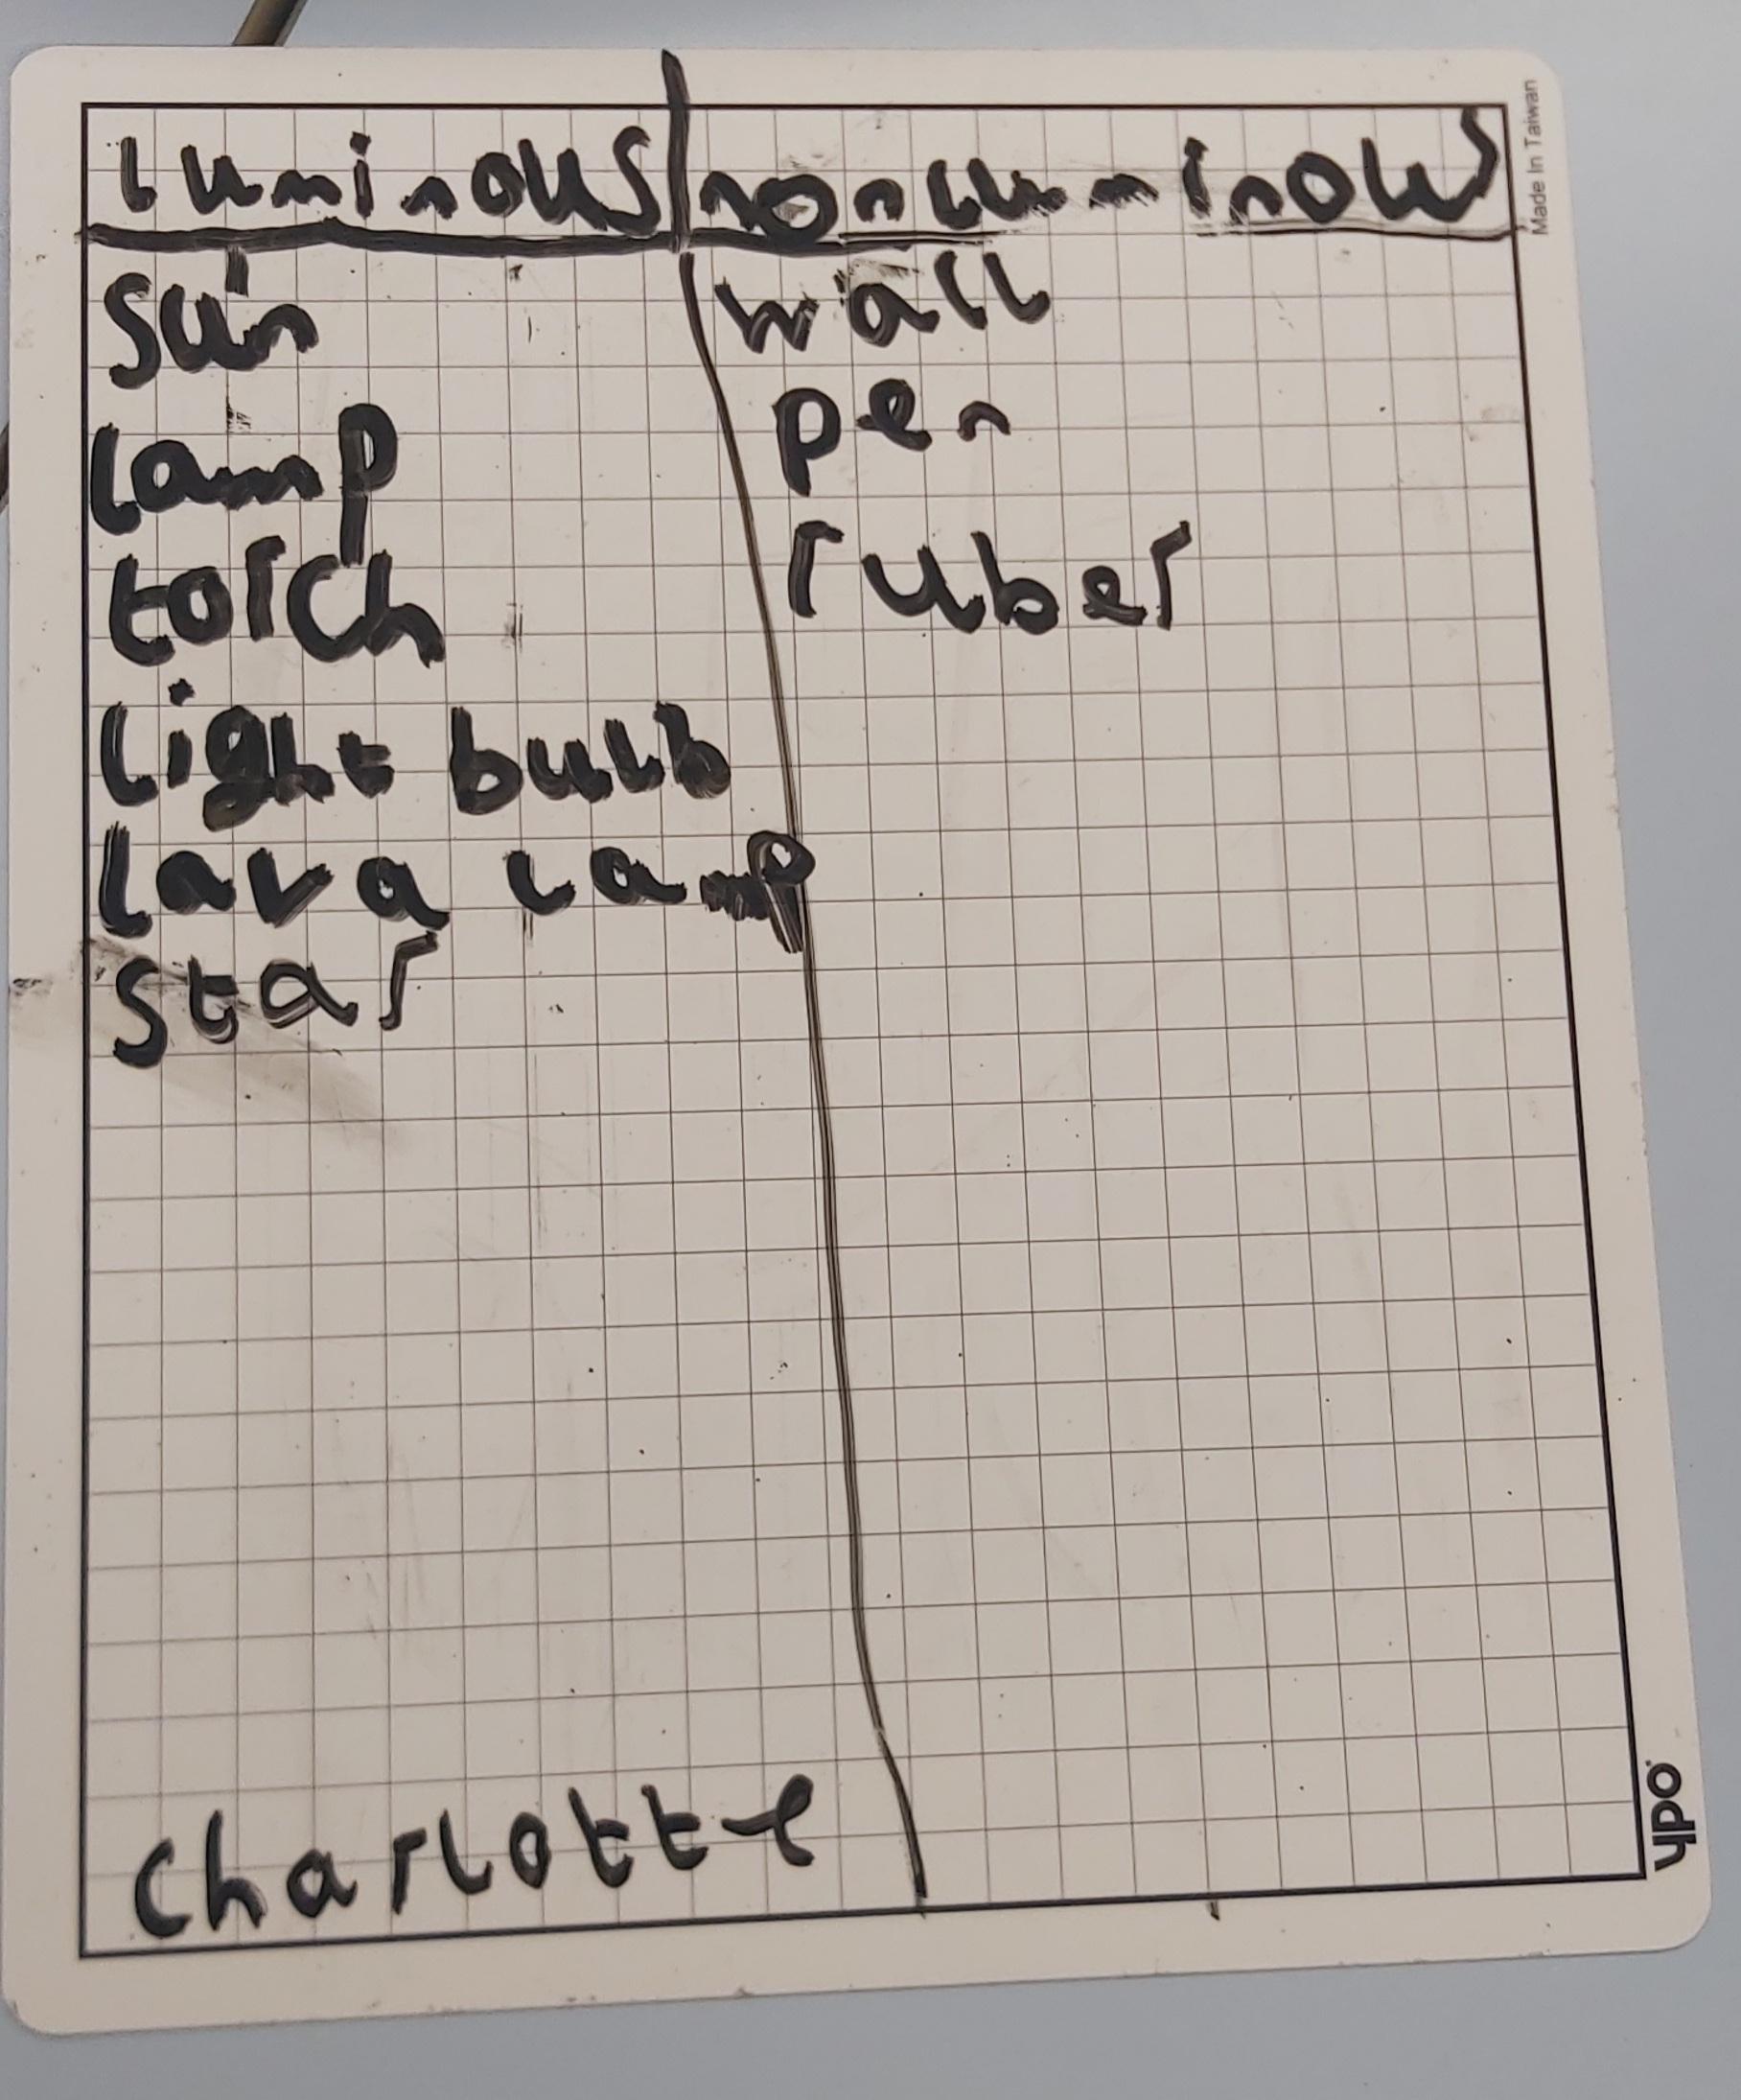 luminous nonluminous
sun
lamp
torch
light bulb
lava lamp
star
wall
pen
ruber
Charlotte
Made In Taiwan
ypo